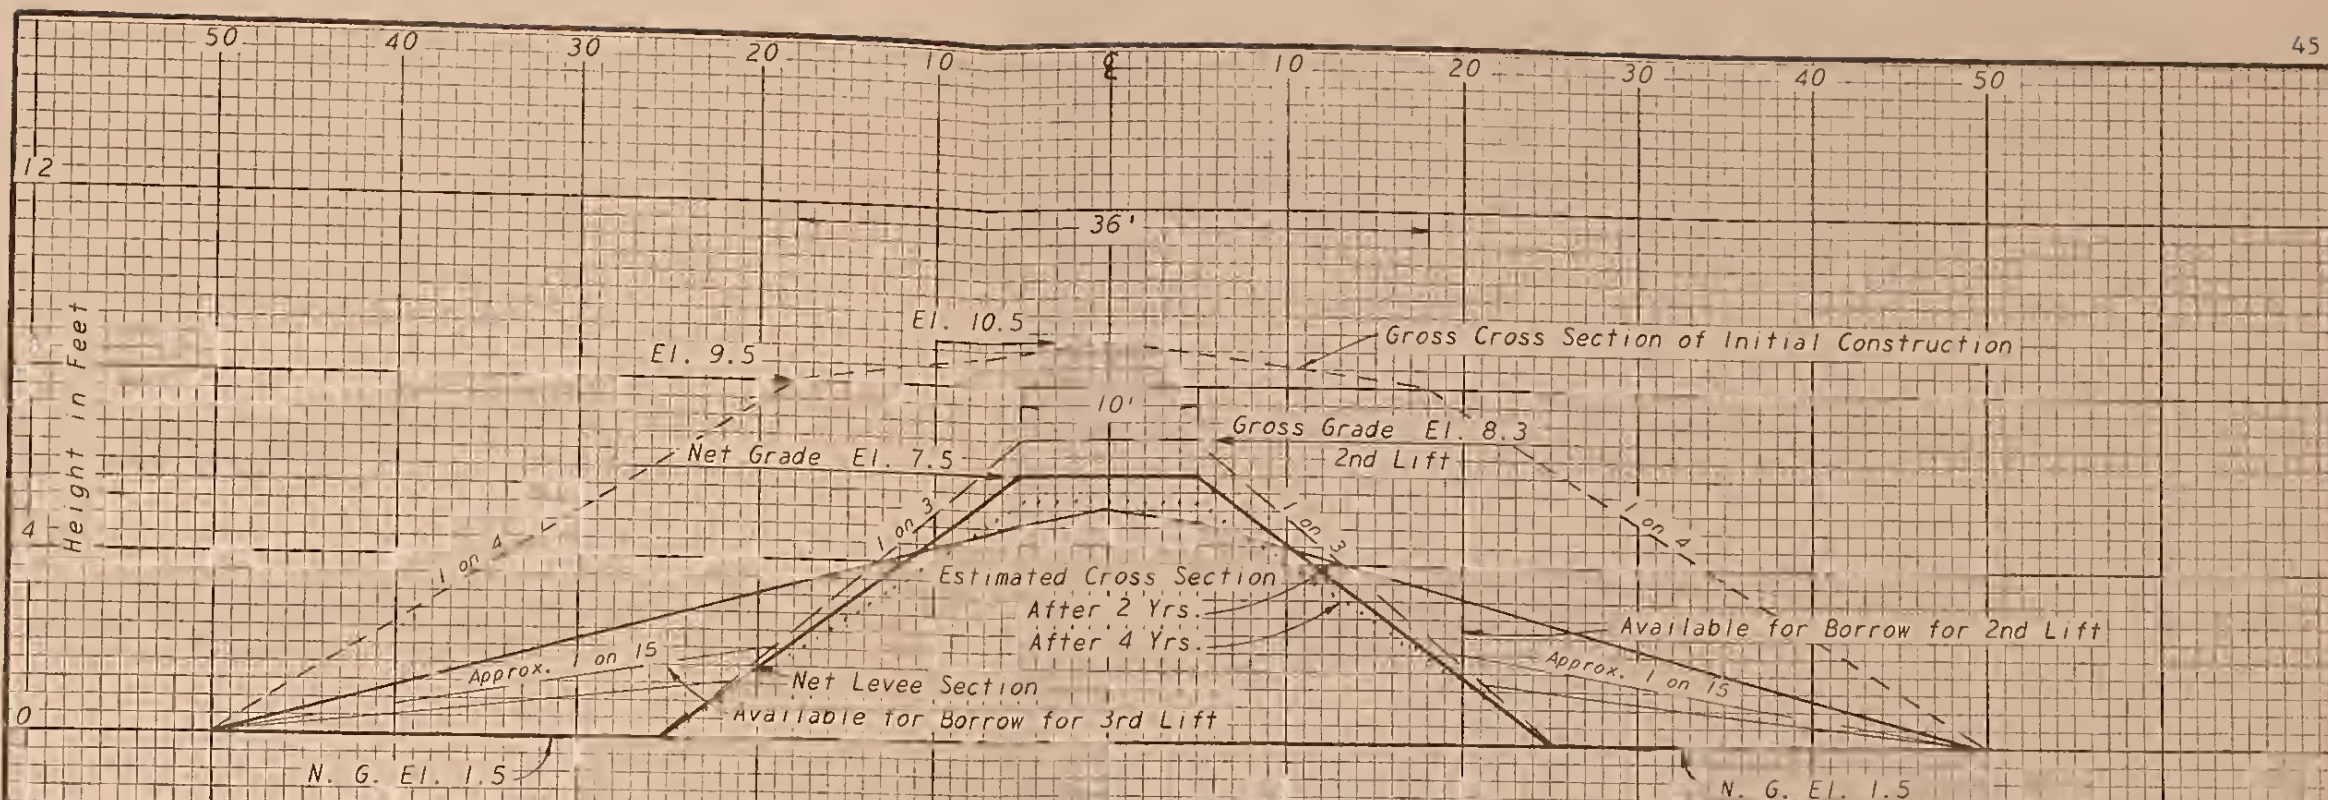 45
50 40 30 20 10 ℄ 10 20 30 40 50
12
36'
Height in Feet
El. 10.5
Gross Cross Section of Initial Construction
El. 9.5
10'
Gross Grade El. 8.3
2nd Lift
Net Grade El. 7.5
4
1 on 3
1 on 3
1 on 4
1 on 4
Estimated Cross Section
After 2 Yrs.
After 4 Yrs.
Available for Borrow for 2nd Lift
Approx. 1 on 15
Approx. 1 on 15
Net Levee Section
Available for Borrow for 3rd Lift
0
N. G. El. 1.5
N. G. El. 1.5